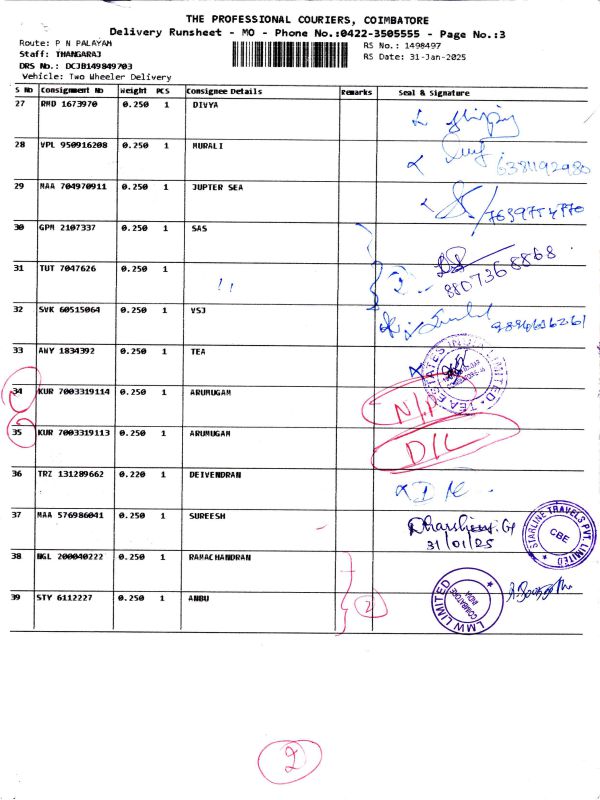 THE PROFESSIONAL COURIERS, COIMBATORE
Delivery Runsheet - MO - Phone No.:0422-3505555 - Page No.:3
Route: P N PALAYAM
RS No.: 1498497
Staff: THANGARAJ
RS Date: 31-Jan-2025
DRS No.: DCJB149849703
Vehicle: Two Wheeler Delivery
S No Consignment No Weight PCS Consignee Details Remarks Seal & Signature
27 RMD 1673970 0.250 1 DIVYA
28 VPL 950916208 0.250 1 MURALI
6381192980
29 MAA 704970911 0.250 1 JUPTER SEA
7639754770
30 GPM 2107337 0.250 1 SAS
31 TUT 7047626 0.250 1 ! ! 2
8807368868
32 SVK 60515064 0.250 1 VSJ
33 ANY 1834392 0.250 1 TEA
TEA ESTATES INDIA LIMITED
34 KUR 7003319114 0.250 1 ARUMUGAM N/P
35 KUR 7003319113 0.250 1 ARUMUGAM D/L
36 TRZ 131289662 0.220 1 DEIVENDRAN
37 MAA 576986041 0.250 1 SUREESH
31/01/25
STARLINE TRAVELS PVT. LIMITED
CBE
38 NGL 200040222 0.250 1 RAMACHANDRAN
39 STY 6112227 0.250 1 ANBU 2
LMW LIMITED
COIMBATORE
INDIA
2